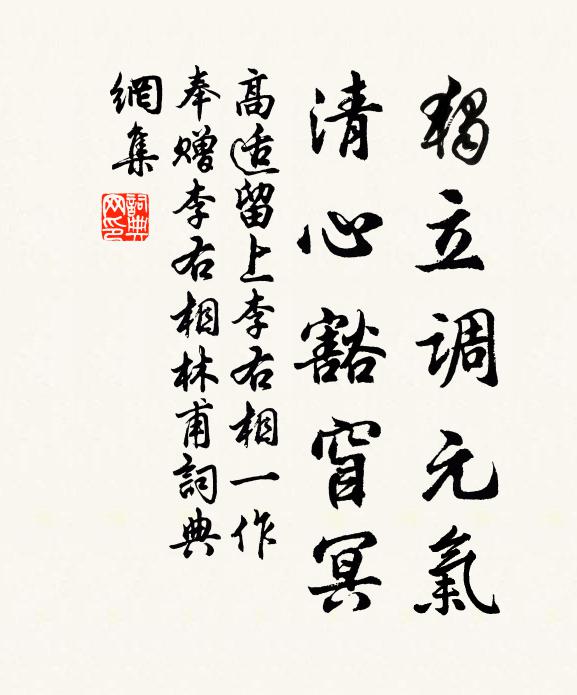 獨立調元氣
清心豁窅冥
高适留上李右相一作
奉贈李右相林甫詞典
網集
詞典
网印